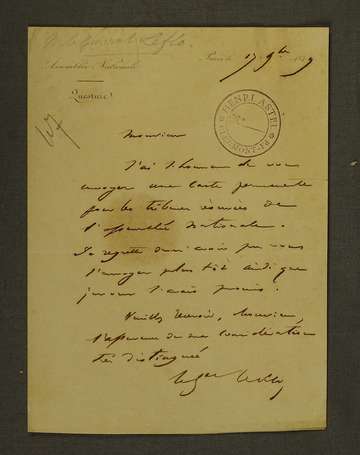 Le général Leflo.
Assemblée Nationale
Paris le 17 9bre 1849
Questure
Monsieur
J'ai l'honneur de vous
envoyer une carte permanente
pour les tribunes réservées de
l'assemblée Nationale.
Je regrette de n'avoir pu vous
l'envoyer plus tôt ainsi que
je vous l'avais promis.
Veuillez recevoir, Monsieur,
l'assurance de ma considération
très distinguée
HENRI ASTEL